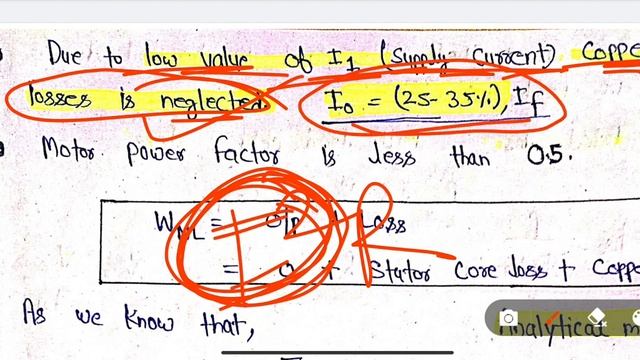 Due to low value of I1 (supply current) Coppe
losses is neglected I0 = (25-35%), If
Motor power factor is less than 0.5.
WNL = o/p + Loss
= 0 + Stator Core loss + Coppe
As we know that,
Analytical m